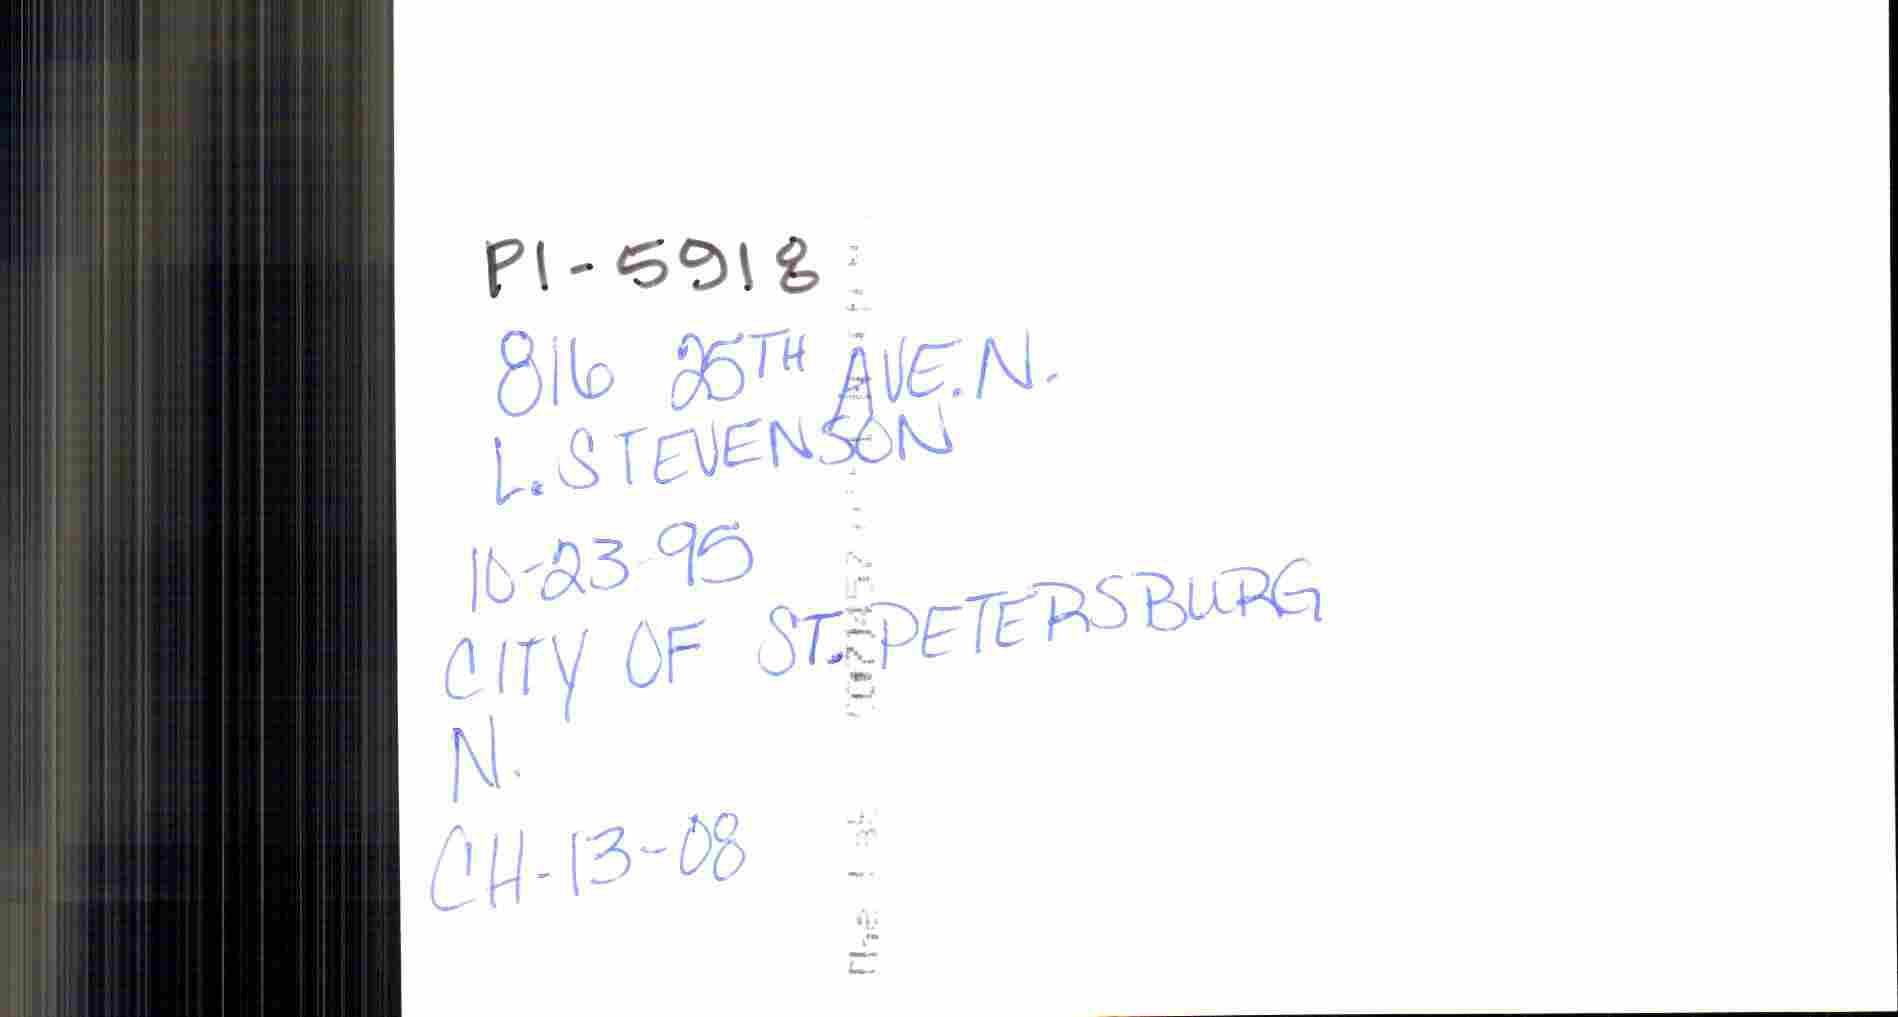 P1-5918
816 25TH AVE. N.
L. STEVENSON
10-23-95
CITY OF ST. PETERSBURG
N.
CH-13-08